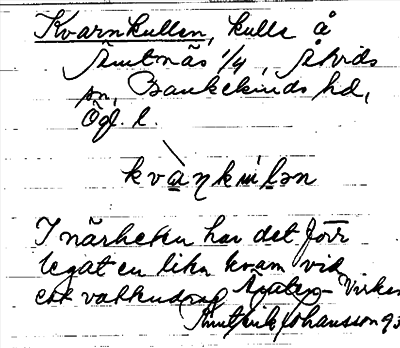 Kvarnkullen, kulle å
Slutnäs 1/4, Åtvids
sn, Bankekinds hd,
Ögl. l.
kvàṇkuḷən
I närheten har det förr
legat en liten kvarn vid
ett vattendrag
Knut Erik Johansson 93